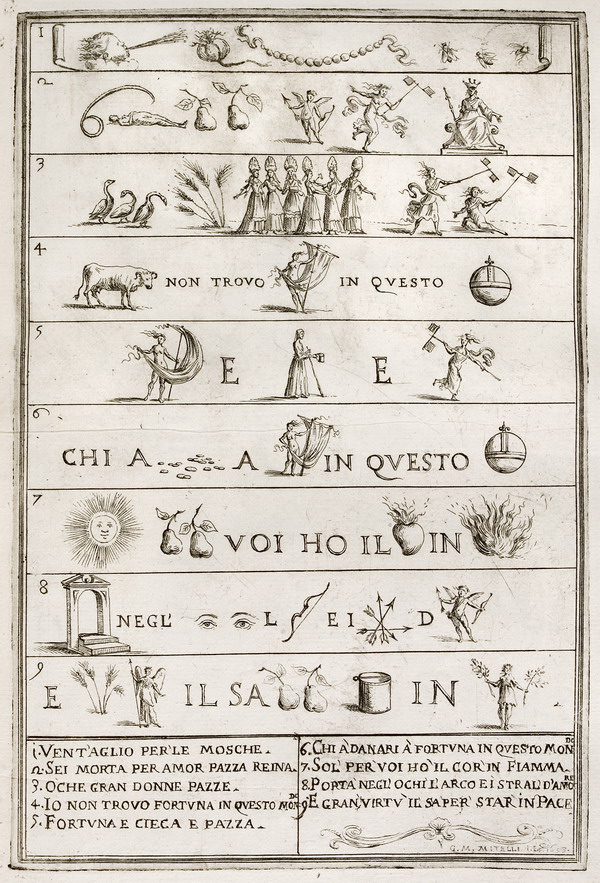 1
2
3
4 NON TROVO IN QVESTO
5 E E
6 CHI A A IN QVESTO
7 VOI HO IL IN
8 NEGL' L EI D
9 E IL SA IN
1. VENTAGLIO PER LE MOSCHE.
2. SEI MORTA PER AMOR PAZZA REINA.
3. OCHE GRAN DONNE PAZZE.
4. IO NON TROVO FORTVNA IN QVESTO MONDO
5. FORTVNA E CIECA E PAZZA.
6. CHI À DANARI À FORTVNA IN QVESTO MONDO
7. SOL' PER VOI HO IL COR IN FIAMMA.
8. PORTA NEGL' OCHI L'ARCO E I STRAL' D'AMORE
9. E GRAN VIRTV IL SAPER STAR IN PACE
G. M. MITELLI